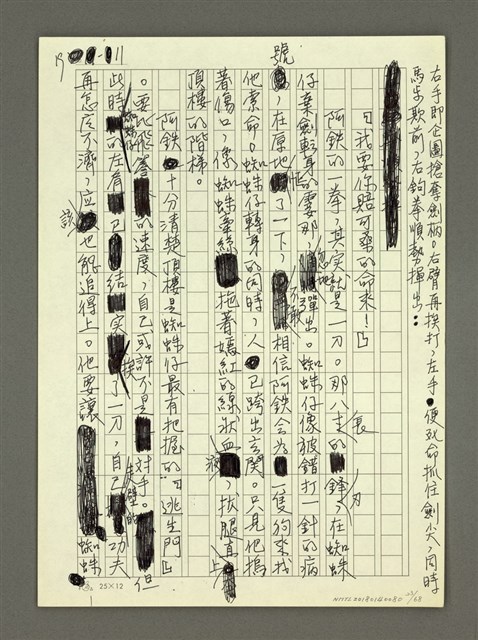 右手即企圖搶奪劍柄。右臂再挨打，左手便致命抓住劍尖，同時
馬步欺前，右鉤拳順勢揮出：
「我要你賠可桑的命來！」
阿鉄的一拳，其实就是一刀。那八支長的鋒刃，在蜘蛛
仔棄劍転身的霎那，忽地彈出。蜘蛛仔像被錯打一針的病
號，在原地了一下，不敢相信阿鉄会為一隻狗來找
他索命。蜘蛛仔轉身的同時，人已跨出玄関。只見他摀
著傷口，像蜘蛛索絲拖著嫣紅的線狀血液，拔腿直上
頂樓的階梯。
阿鉄十分清楚頂樓是蜘蛛仔最有把握的「逃生門」
。要比飛簷走壁的速度，自己或許不是対手。但
此時蜘蛛仔的左肩已結实挨了一刀，自己功夫
再怎麼不濟，应該也能追得上。他要讓蜘蛛
25×12
23/68